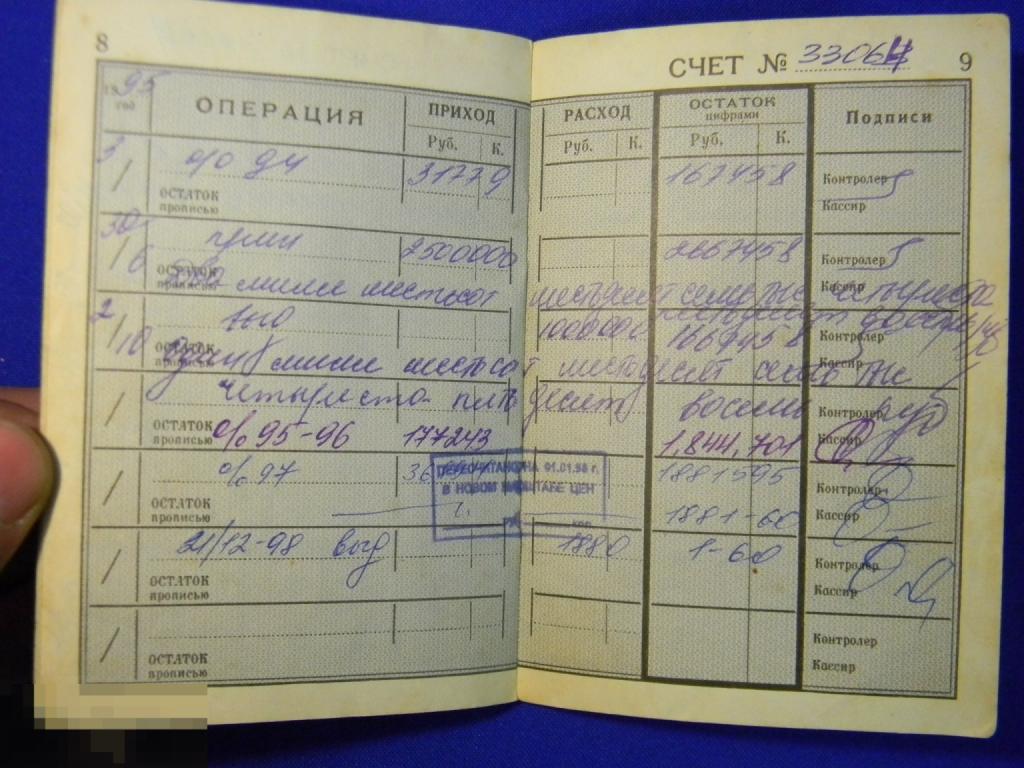 8
СЧЕТ № 33064
9
1995 год
ОПЕРАЦИЯ
ПРИХОД
Руб. К.
РАСХОД
Руб. К.
ОСТАТОК
цифрами
Руб. К.
Подписи
3/1 о/о 94 31779 167458 Контролер
ОСТАТОК прописью Кассир
30/6 2500000 2667458 Контролер
ОСТАТОК прописью Два милли шестьсот шестьдесят семь тыс четыреста Кассир
2/10 1000000 1667458 Контролер
ОСТАТОК прописью Один милли шестьсот шестьдесят семь тыс Кассир
четыреста пятьдесят восемь руб Контролер
ОСТАТОК прописью о/о 95-96 177243 1,844,701 Кассир
о/о 97 36 1881595 Контролер
ПЕРЕСЧИТАНО НА 01.01.98 г.
В НОВОМ МАСШТАБЕ ЦЕН
ОСТАТОК прописью 1881-60 Кассир
коп
21/12-98 выд 1880 1-60 Контролер
ОСТАТОК прописью Кассир
Контролер
ОСТАТОК прописью Кассир